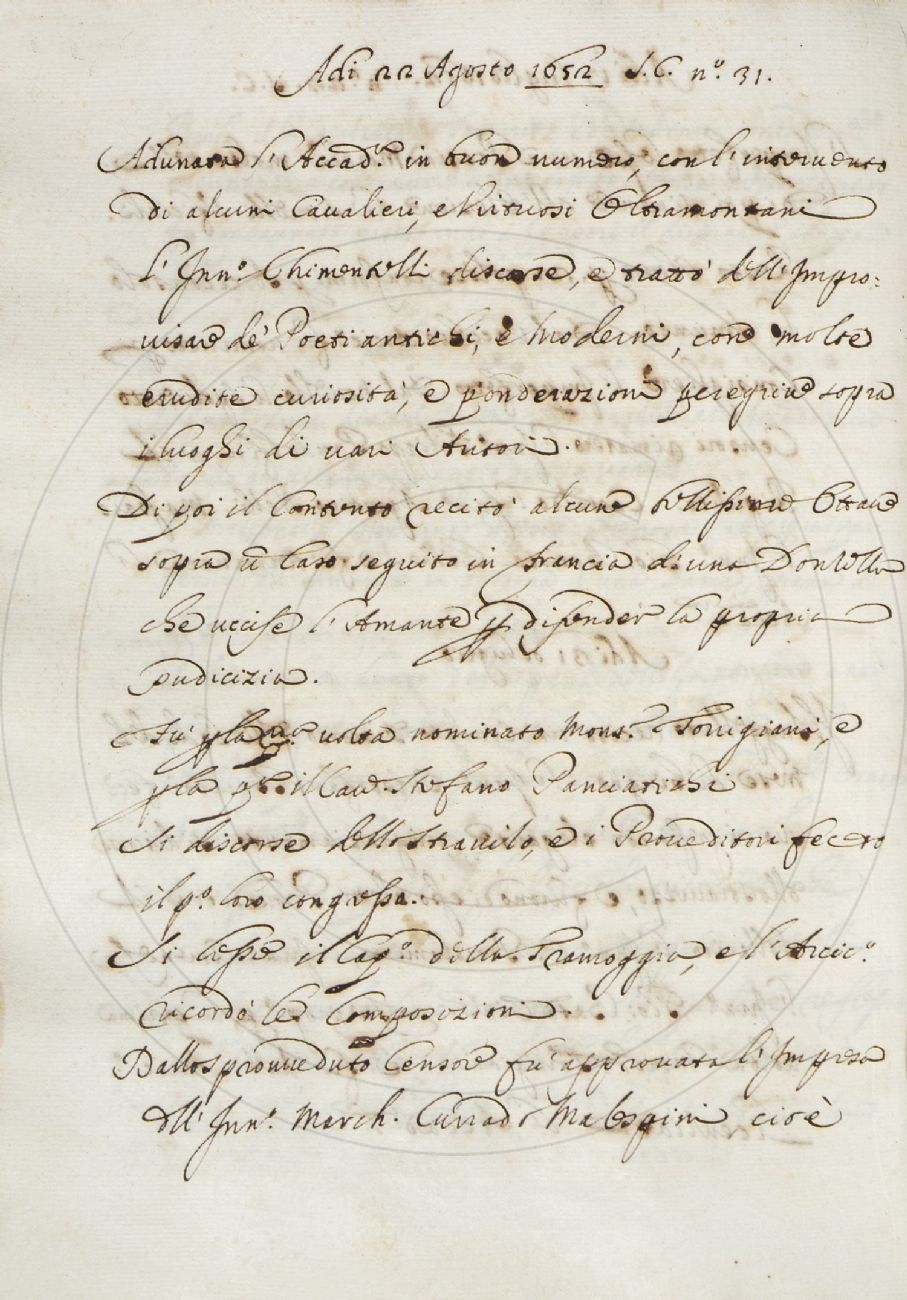 Adi 22 Agosto 1652 S.C. nº. 31.
Adunata l'Accad.ª in buon numero, con l'intervento
di alcuni Cavalieri, e Virtuosi Oltramontani
l'Innº. Chimentelli discorse, e trattò dell'Impro=
visare de' Poeti antichi, e Moderni, con molte
erudite curiosità, e ponderazioni peregrine sopra
i luoghi di vari Autori.
Di poi il Contento recitò alcune bellissime Ottave
sopra ū Caso seguito in Francia di una Donzella
che uccise l'Amante p difender la propria
pudicizia.
Fù p la volta nominato Mons.r Torrigiani, e
p la il Cav. Stefano Panciatichi
Si discorse dello Stravizo, e i Proveditori fecero
il pº. loro congresso.
Si lesse il Capº. della Tramoggia, e l'Arcicº.
ricordò le Composizioni.
Dallo sprovveduto Censore fù approvata l'Impresa
dell'Innº. March. Currado Malespini cioè